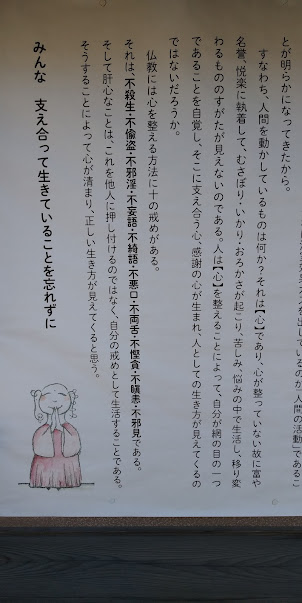 いるのか、人間の活動であるこ
とが明らかになってきたから。
すなわち、人間を動かしているものは何か？それは【心】であり、心が整っていない故に富や
名誉、悦楽に執着して、むさぼり・いかり・おろかさが起こり、苦しみ、悩みの中で生活し、移り変
わるもののすがたが見えないのである。人は【心】を整えることによって、自分が網の目の一つ
であることを自覚し、そこに支え合う心、感謝の心が生まれ、人としての生き方が見えてくるの
ではないだろうか。
仏教には心を整える方法に十の戒めがある。
それは、不殺生・不偸盗・不邪淫・不妄語・不綺語・不悪口・不両舌・不慳貪・不瞋恚・不邪見である。
そして肝心なことは、これを他人に押し付けるのではなく、自分の戒めとして生活することである。
そうすることによって心が清まり、正しい生き方が見えてくると思う。
みんな 支え合って生きていることを忘れずに